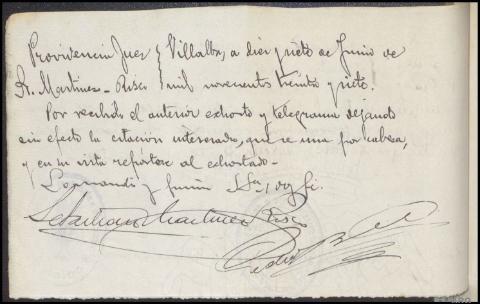 Providencia Juez } Villalba, a diez y siete de Junio de
Sr. Martinez-Risco } mil novecientos treinta y siete.
Por recibido el anterior exhorto y telegrama dejando
sin efecto la citación interesada, que se una por cabeza,
y en su vista repórtese al exhortado-
Lo mandó y firma S.Sª doy fé.
Sebastian Martinez Risco
Pedro